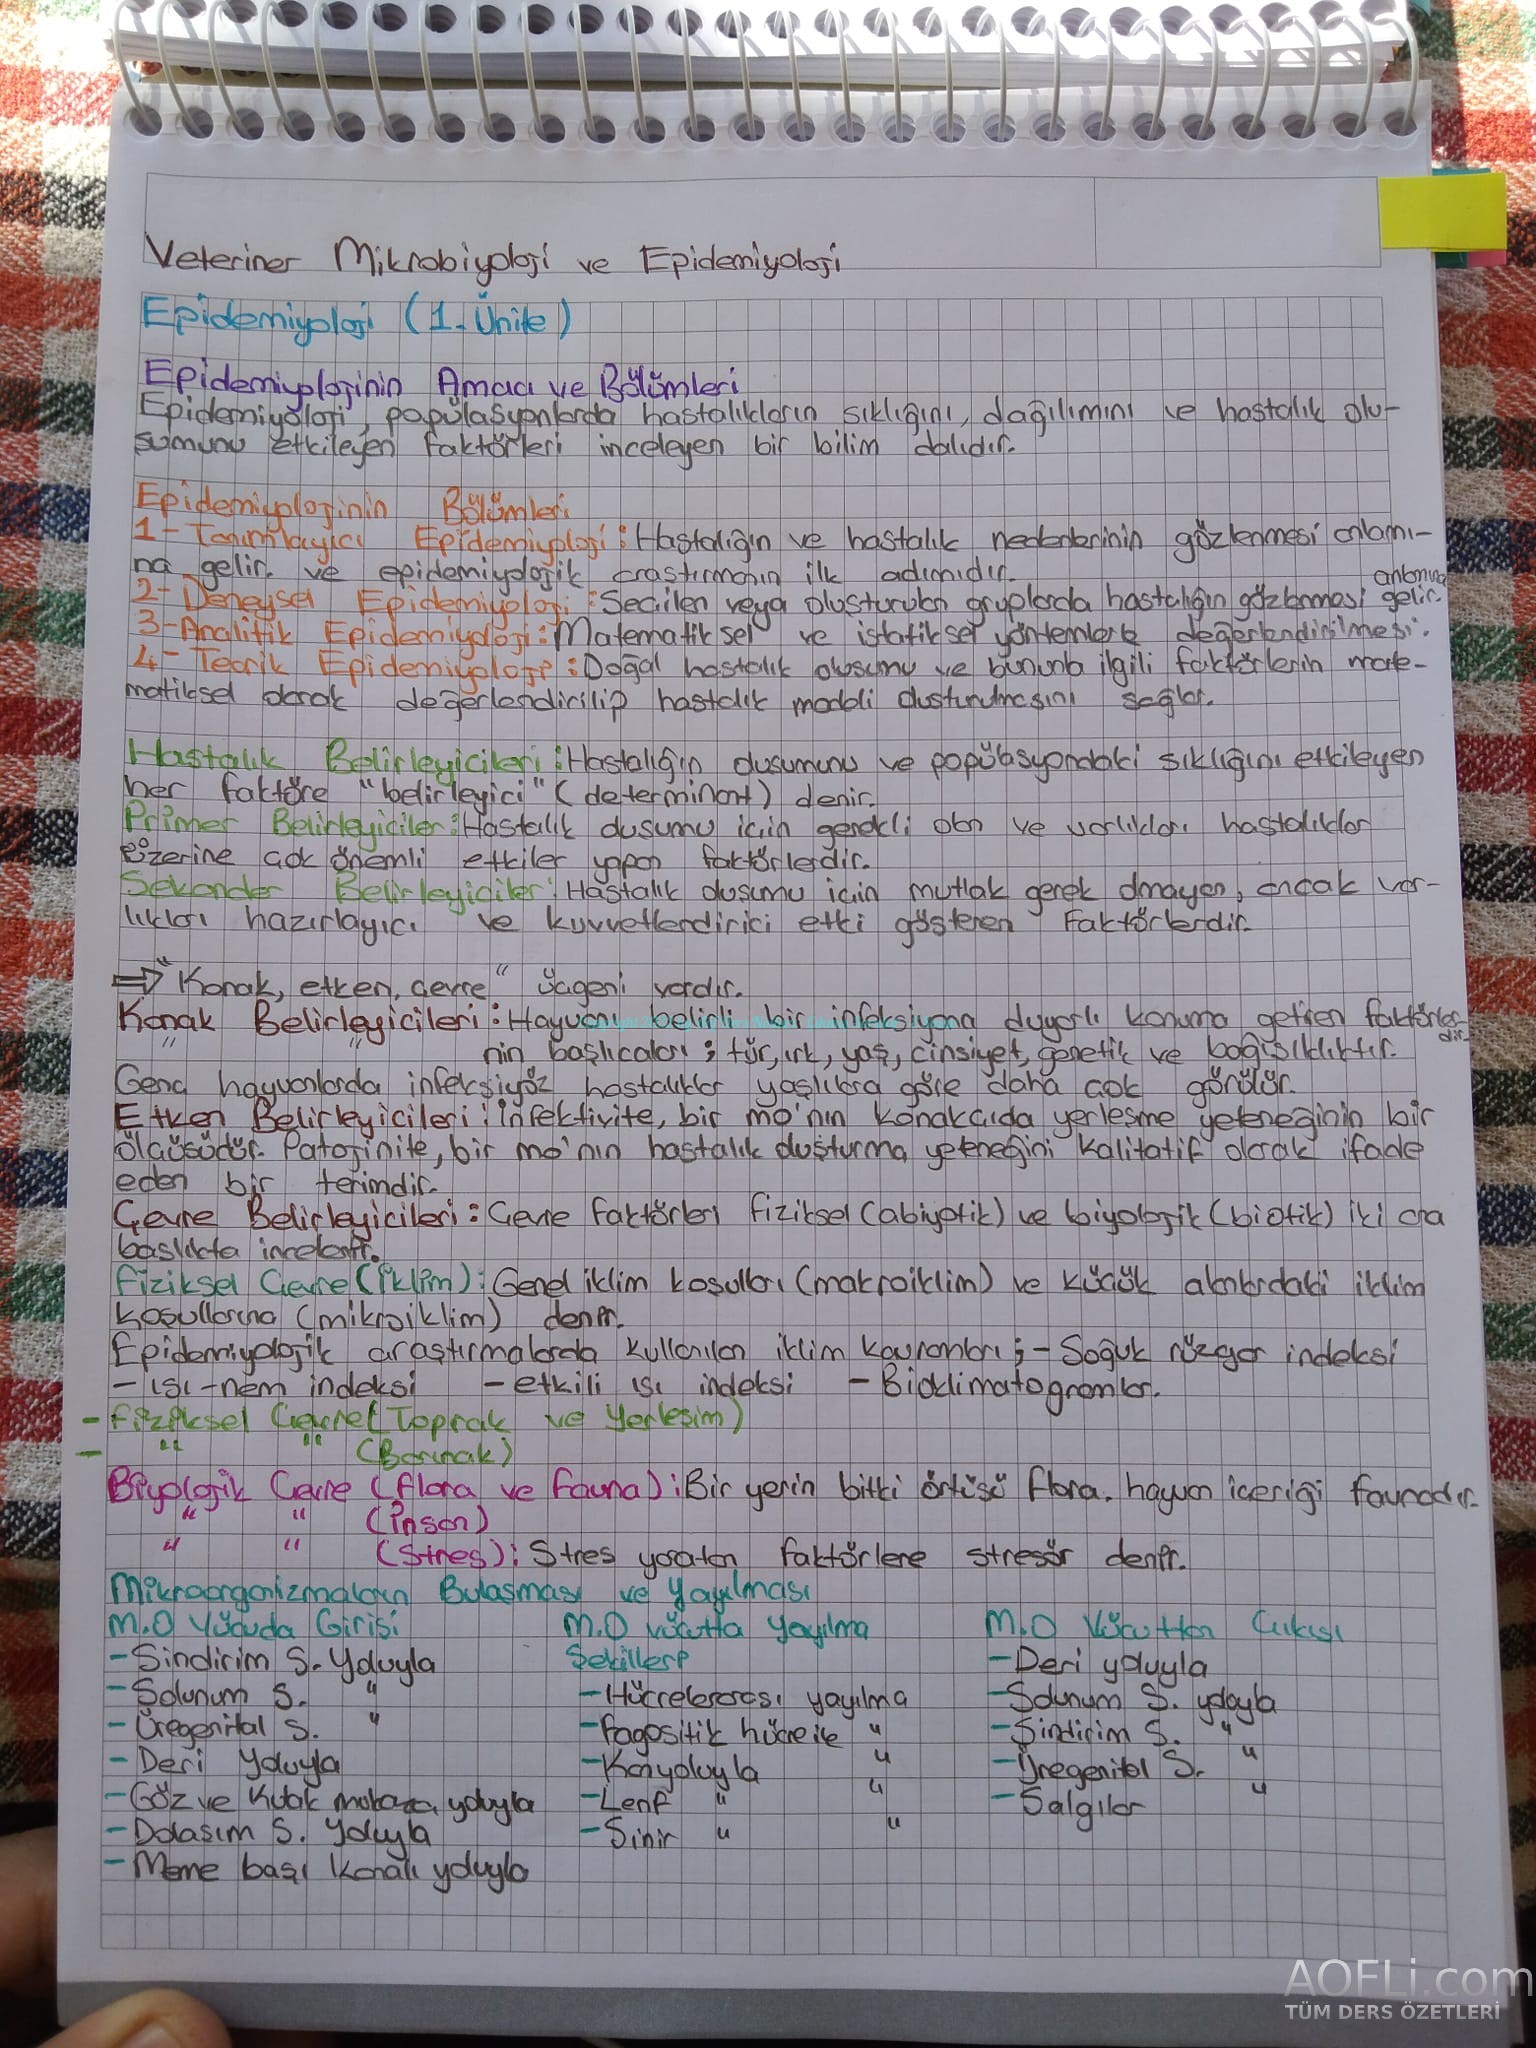 Veteriner Mikrobiyoloji ve Epidemiyoloji
Epidemiyoloji (1. Ünite)
Epidemiyolojinin Amacı ve Bölümleri
Epidemiyoloji, popülasyonlarda hastalıkların sıklığını, dağılımını ve hastalık olu-
şumunu etkileyen faktörleri inceleyen bir bilim dalıdır.
Epidemiyolojinin Bölümleri
1- Tanımlayıcı Epidemiyoloji: Hastalığın ve hastalık nedenlerinin gözlenmesi anlamı-
na gelir. ve epidemiyolojik araştırmanın ilk adımıdır.
2- Deneysel Epidemiyoloji: Seçilen veya oluşturulan gruplarda hastalığın gözlenmesi anlamına gelir.
3- Analitik Epidemiyoloji: Matematiksel ve istatiksel yöntemlerle değerlendirilmesi.
4- Teorik Epidemiyoloji: Doğal hastalık oluşumu ve bununla ilgili faktörlerin mate-
matiksel olarak değerlendirilip hastalık modeli oluşturulmasını sağlar.
Hastalık Belirleyicileri: Hastalığın oluşumunu ve popülasyondaki sıklığını etkileyen
her faktöre "belirleyici" (determinant) denir.
Primer Belirleyiciler: Hastalık oluşumu için gerekli olan ve varlıkları hastalıklar
üzerine çok önemli etkiler yapan faktörlerdir.
Sekonder Belirleyiciler: Hastalık oluşumu için mutlak gerek olmayan, ancak var-
lıkları hazırlayıcı ve kuvvetlendirici etki gösteren faktörlerdir.
⇒ "Konak, etken, çevre" üçgeni vardır.
Konak Belirleyicileri: Hayvanı belirli bir infeksiyona duyarlı konuma getiren faktörler-
dir.
" " nin başlıcaları; tür, ırk, yaş, cinsiyet, genetik ve bağışıklıktır.
Genç hayvanlarda infeksiyöz hastalıklar yaşlılara göre daha çok görülür.
Etken Belirleyicileri: İnfektivite, bir mo'nın konakçıda yerleşme yeteneğinin bir
ölçüsüdür. Patojinite, bir mo'nın hastalık oluşturma yeteneğini kalitatif olarak ifade
eden bir terimdir.
Çevre Belirleyicileri: Çevre faktörleri fiziksel (abiyotik) ve biyolojik (biotik) iki ana
başlıkta incelenir.
Fiziksel Çevre (İklim): Genel iklim koşulları (makroiklim) ve küçük alanlardaki iklim
koşullarına (mikroiklim) denir.
Epidemiyolojik araştırmalarda kullanılan iklim kavramları; - Soğuk rüzgar indeksi
- ısı-nem indeksi - etkili ısı indeksi - Bioklimatogramlar.
- Fiziksel Çevre (Toprak ve Yerleşim)
- " " (Barınak)
Biyolojik Çevre (flora ve fauna): Bir yerin bitki örtüsü flora, hayvan içeriği faunadır.
" " (İnsan)
" " (Stres): Stres yaratan faktörlere stresör denir.
Mikroorganizmaların Bulaşması ve Yayılması
M.O Vücuda Girişi
- Sindirim S. Yoluyla
- Solunum S. "
- Ürogenital S. "
- Deri Yoluyla
- Göz ve Kulak mukoza yoluyla
- Dolaşım S. Yoluyla
- Meme başı Kanalı yoluyla
M.O Vücutta Yayılma
Şekilleri
- Hücrelerarası yayılma
- Fagositik hücre ile "
- Kan yoluyla "
- Lenf " "
- Sinir " "
M.O Vücuttan Çıkışı
- Deri yoluyla
- Solunum S. yoluyla
- Sindirim S. "
- Üregenital S. "
- Salgılar "
AOFLi.com
TÜM DERS ÖZETLERİ